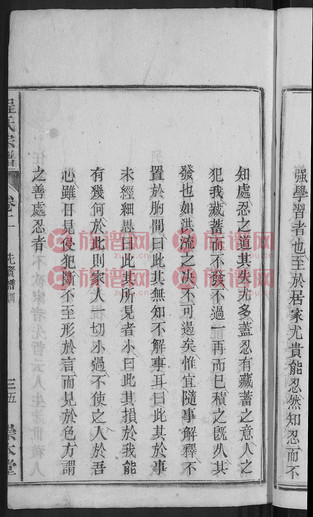 强學習者也至於居家尤貴能忍然知忍而不
知處忍之道其失尤多蓋忍有藏蓄之意人之
犯我藏蓄而不發不過一再而已積之既久其
發也如洪流之决不可遏矣惟宜隨事解釋不
置於胸間曰此其無知曰此其不解事耳曰此其於事
未經細思曰此其所見者小曰此其損於我能
有幾何於此則家人一切小過不使之入於吾
心雖日見侵犯斷不至形於言而見於色方謂
之善處忍者
程氏宗譜
卷之一
先賢譜訓
三五
崇本堂
族谱网